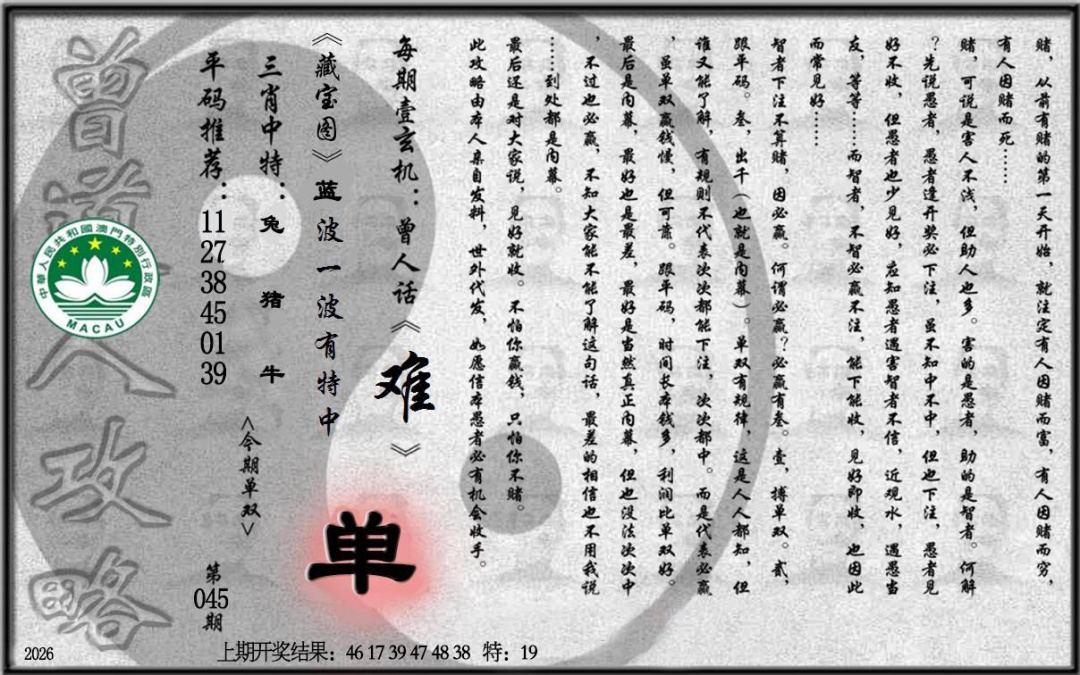 赌，从前有赌的第一天开始，就注定有人因赌而富，有人因赌而穷，
有人因赌而死……
赌，可说是害人不浅，但助人也多。害的是愚者，助的是智者。何解
？先说愚者，愚者逢开奖必下注，虽不知中不中，但也下注，愚者见
好不收，但愚者也少见好，应知愚者遇害智者不信，近观水，遇愚当
友，等等……而智者，不智必赢不注，能下能收，见好即收，也因此
而常见好……
智者下注不算赌，因必赢。何谓必赢？必赢有叁。壹，搏单双。贰，
跟平码。叁，出千（也就是内幕）。单双有规律，这是人人都知，但
谁又能了解，有规则不代表次次都能下注，次次都中。而是代表必赢
，虽单双赢钱慢，但可靠。跟平码，时间长本钱多，利润比单双好。
最后是内幕，最好也是最差，最好是当然真正内幕，但也没法次次中
，不过也必赢，不知大家能不能了解这句话，最差的相信也不用我说
……到处都是内幕。
最后还是对大家说，见好就收。不怕你赢钱，只怕你不赌。
此攻略由本人亲自发料，世外代发，如愿信本愚者必有机会收手。
每期壹玄机：曾人话《难》
《藏宝图》蓝波一波有特中
单
三肖中特：兔 猪 牛
<今期单双>
平码推荐：11 27 38 45 01 39
第045期
曾道人攻略
中華人民共和國澳門特別行政區
MACAU
2026
上期开奖结果：46 17 39 47 48 38 特：19